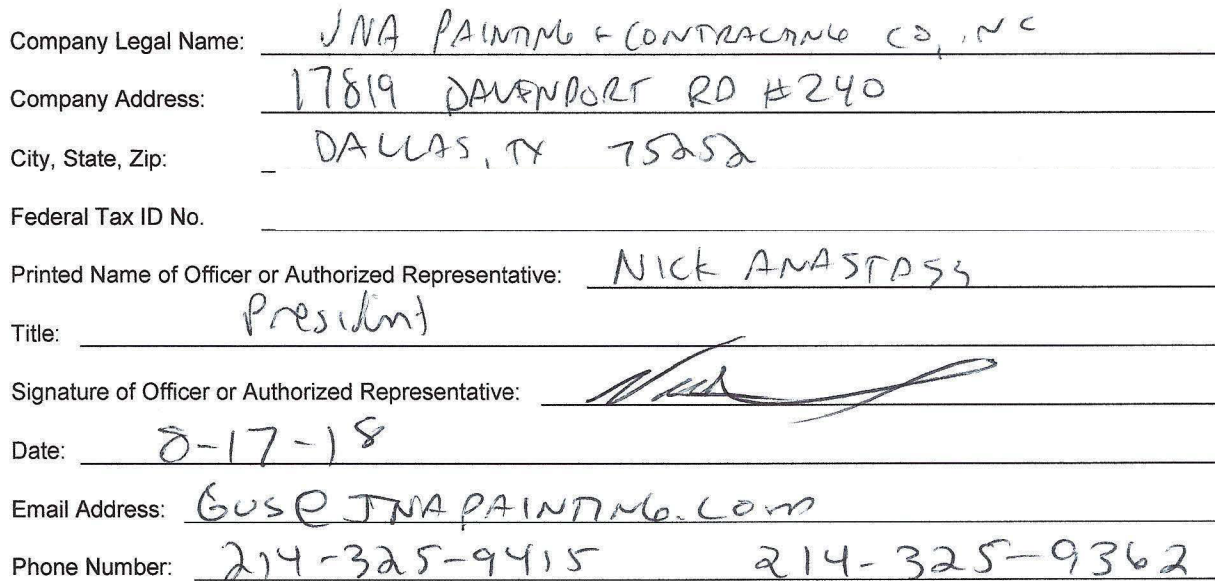 Company Legal Name: JNA PAINTING & CONTRACTING CO, INC
Company Address: 17819 DAVENPORT RD #240
City, State, Zip: DALLAS, TX 75252
Federal Tax ID No.
Printed Name of Officer or Authorized Representative: NICK
Title: President
Signature of Officer or Authorized Representative:
Date: 8-17-18
Email Address: GUS@JNAPAINTING.COM
Phone Number: 214-325-9415 214-325-9362